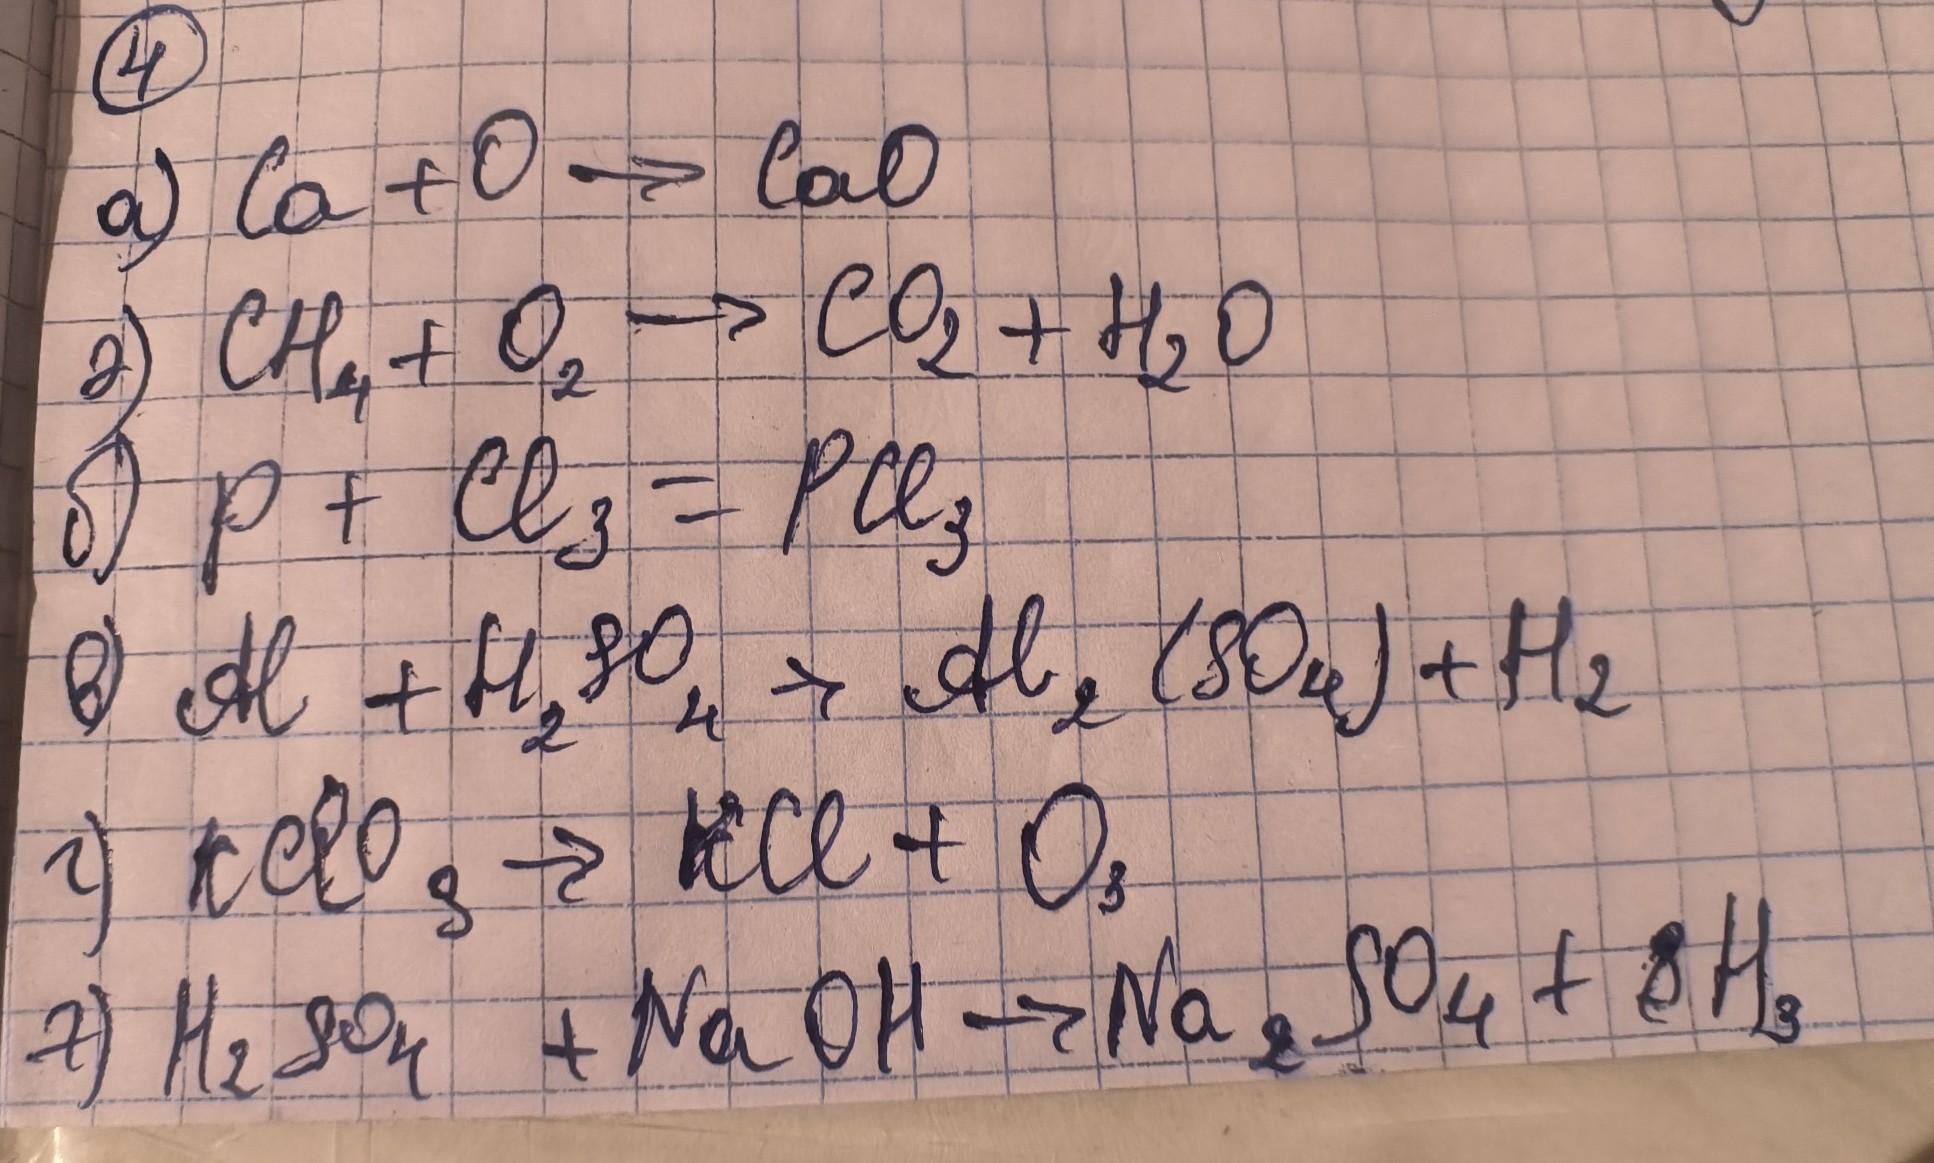 4
а) Ca + O → CaO
д) CH₄ + O₂ → CO₂ + H₂O
б) P + Cl₃ = PCl₃
в) Al + H₂SO₄ → Al₂(SO₄) + H₂
г) KClO₃ → KCl + O₃
7) H₂SO₄ + NaOH → Na₂SO₄ + H₃